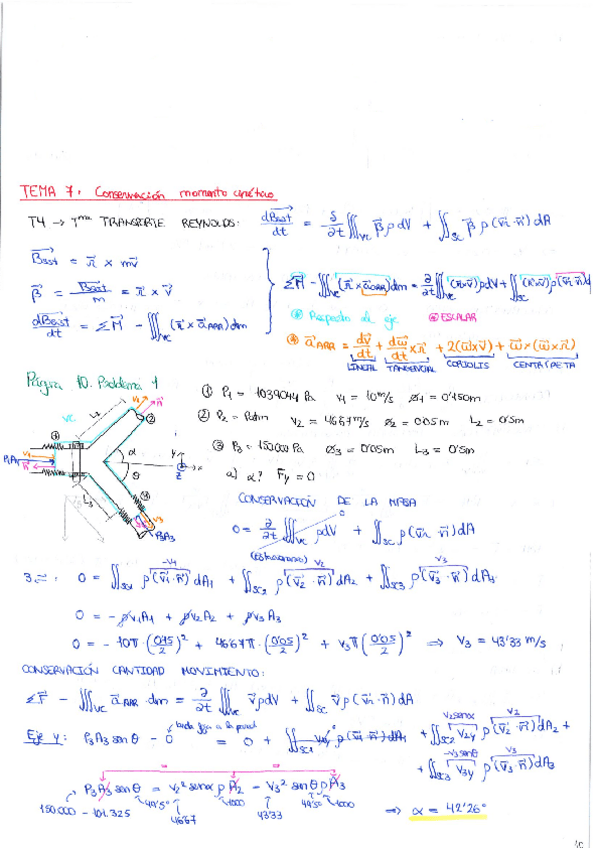 TEMA 7: Conservación momento cinético
T4 → Tma TRANSPORTE REYNOLDS: dBsist/dt = ∂/∂t ∭VC β ρ dV + ∬SC β ρ (vr · n) dA
Bsist = r × mv
β = Bsist/m = r × v
ΣM - ∭VC (r × aARR) dm = ∂/∂t ∭VC (r×v) ρdV + ∬SC (r×v) ρ (vr · n) dA
dBsist/dt = ΣM - ∭ (r × aARR) dm
Respecto de eje ESCALAR
aARR = dv/dt + dω/dt × r + 2(ω×v) + ω×(ω×r)
LINEAL TANGENCIAL CORIOLIS CENTRÍPETA
Página 10. Problema 1
① P1 = 1039044 Pa v1 = 10m/s ∅1 = 0'150m
② P2 = Patm v2 = 46'67m/s ∅2 = 0'05m L2 = 0'5m
③ P3 = 150000 Pa ∅3 = 0'05m L3 = 0'5m
a) α? Fy = 0
VC L2 v1 n ② ① α θ y x z P1A1 L3 v3 P3A3
CONSERVACIÓN DE LA MASA
0 = ∂/∂t ∭VC ρdV + ∬SC ρ (vr · n) dA
(estacionario) 0
0 = ∬SC1 ρ (v1 · n) dA1 + ∬SC2 ρ (v2 · n) dA2 + ∬SC3 ρ (v3 · n) dA3
-v1 v2 v3
0 = - ρv1A1 + ρv2A2 + ρv3A3
0 = - 10π · (0'15/2)² + 46'67π · (0'05/2)² + v3π (0'05/2)² ⇒ v3 = 43'33 m/s
CONSERVACIÓN CANTIDAD MOVIMIENTO:
ΣF - ∭VC aARR · dm = ∂/∂t ∭VC vρdV + ∬SC vρ (vr · n) dA
Eje y: P3A3 senθ - 0 = 0 + ∬SC1 v1y ρ (v1 · n) dA1 + ∬SC2 v2y ρ (v2 · n) dA2 +
v2senα v2
+ ∬SC3 v3y ρ (v3 · n) dA3
-v3senθ v3
P3A3 senθ = v2² senα ρA2 - v3² senθ ρA3
150.000 - 101.325 46'67 1000 43'33 1000
⇒ α = 42'26°